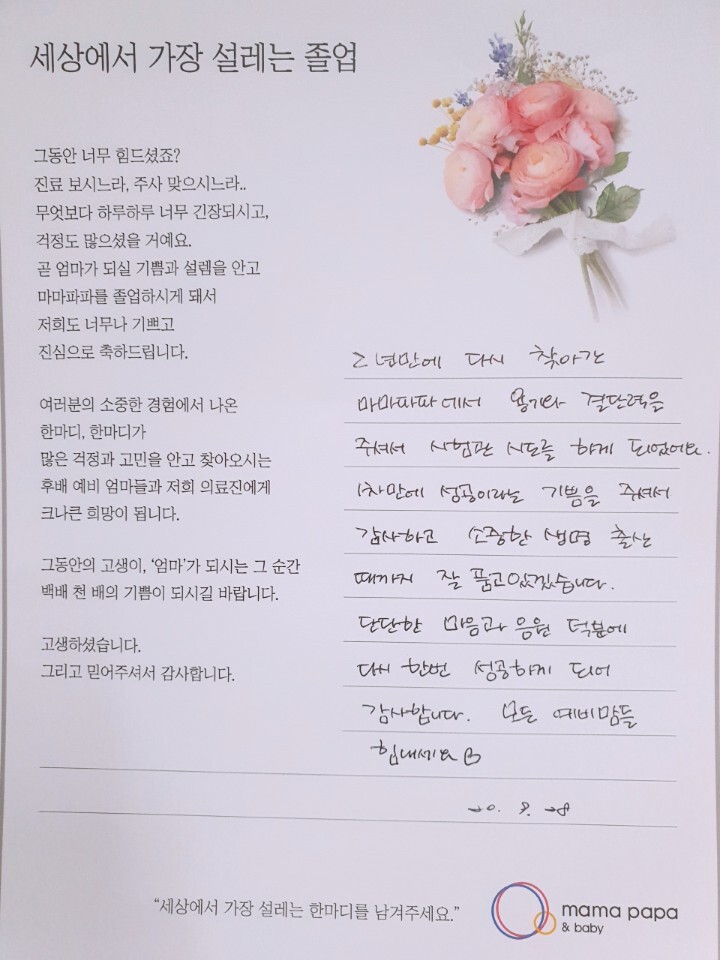 세상에서 가장 설레는 졸업
그동안 너무 힘드셨죠?
진료 보시느라, 주사 맞으시느라..
무엇보다 하루하루 너무 긴장되시고,
걱정도 많으셨을 거예요.
곧 엄마가 되실 기쁨과 설렘을 안고
마마파파를 졸업하시게 돼서
저희도 너무나 기쁘고
진심으로 축하드립니다.
여러분의 소중한 경험에서 나온
한마디, 한마디가
많은 걱정과 고민을 안고 찾아오시는
후배 예비 엄마들과 저희 의료진에게
크나큰 희망이 됩니다.
그동안의 고생이, '엄마'가 되시는 그 순간
백배 천 배의 기쁨이 되시길 바랍니다.
고생하셨습니다.
그리고 믿어주셔서 감사합니다.
2년만에 다시 찾아간
마마파파에서 용기와 결단력을
주셔서 시험관 시도를 하게 되었어요.
1차만에 성공이라는 기쁨을 주셔서
감사하고 소중한 생명 출산
때까지 잘 품고있겠습니다.
단단한 마음과 응원 덕분에
다시 한번 성공하게 되어
감사합니다. 모든 예비맘들
힘내세요
20. 9. 28
"세상에서 가장 설레는 한마디를 남겨주세요."
mama papa
& baby